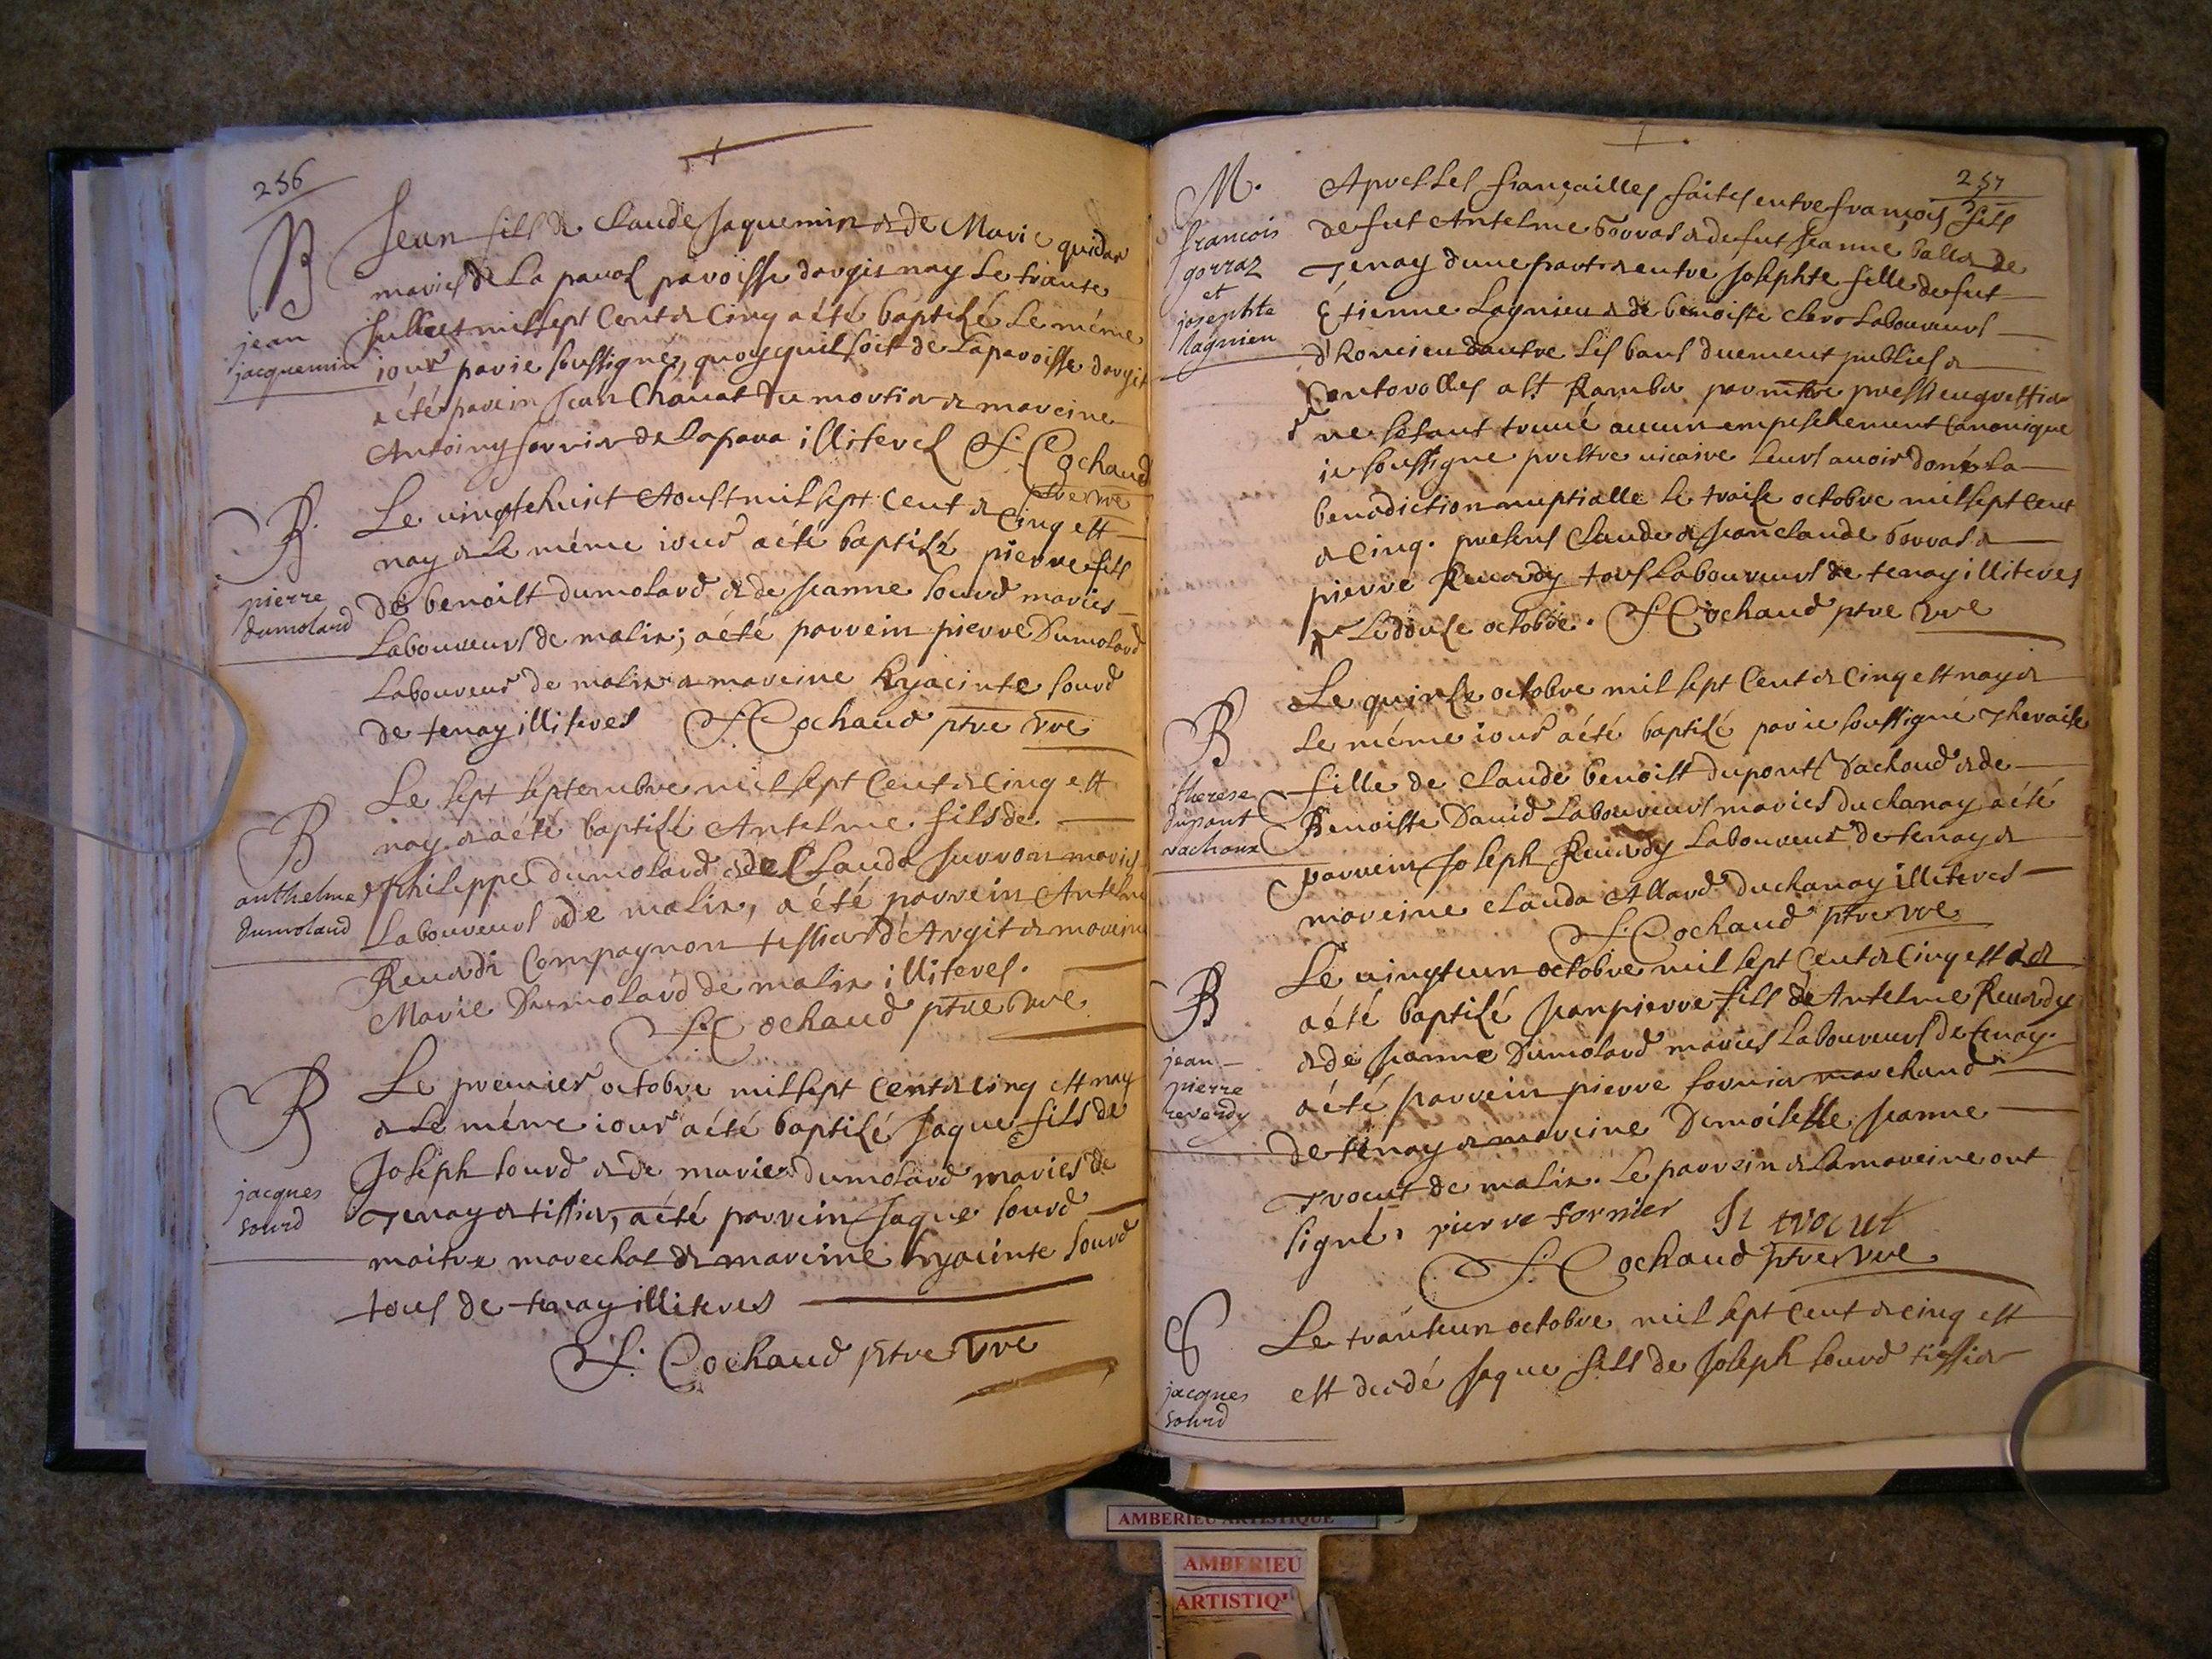 256
B
jean
jacquemin
Jean fils de Claude Jaquemin & de Marie quidar
mariés de La paroisse dargis nay Le trante
Juillet mil sept Cent & Cinq a été baptisé Le méme
iour par ie soussigné, quoyquil soit de Laparoisse dargit
a été parein Jean Chauat du mortier & mareine
Antoiny forrier de Lapara illiterés F: Cochaud
ptre vre
B.
pierre
dumoland
Le uingtehuict Aoust mil sept Cent & Cinq est
nay & Le méme iour a été baptisé pierre fils
de benoist dumolard & de Jeanne sourd mariés
Laboureurs de malix; a été parrein pierre Dumolard
Laboureur de malix & mareine hyacinte sourd
de tenay illiterés F: Cochaud ptre vre
B
anthelme
dumoland
Le sept septembre mil sept Cent & Cinq est
nay & a été baptisé Antelme fils de
Philippe dumolard & de Clauda Jurron mariés
Laboureurs de malix, a été parrein Antelme
Reuerdi Compagnon tessier d'Argit & mareine
Marie Dumolard de malix illiterés.
F: Cochaud ptre vre
B
jacques
sourd
Le premier octobre mil sept Cent & Cinq est nay
& Le méme iour a été baptisé Jaque fils de
Joseph sourd & de marie dumolard mariés de
Tenay & tissier, a été parrein Jaque sourd
maitre marechal & mareine hyacinte sourd
tous de tenay illiterés
F: Cochaud ptre vre
257
M.
francois
gorraz
et
josephte
lagnieu
Apres Les fiançailles faites entre françois fils
de fut Antelme Gorras & de fut Jeanne balla de
Tenay dune part & entre Josephte fille de fut
Étienne Lagnieu & de benoiste clero Laboureurs
d'honcieu dautre Les bans duement publiés &
Controllés a st Rambr par
ne sétant trouué aucun empeschement Canonique
ie soussigné prestre uicaire Leurs auoir doné La
benediction nuptialle Le traise octobre mil sept Cent
& Cinq. presens Claude & Jean claude Gorras &
pierre Reuerdy tous Laboureurs de tenay illiteres
Le douse octobre. F: Cochaud ptre vre
B
therese
dupont
vachoux
Le quinse octobre mil sept Cent & Cinq est nay &
Le méme iour a été baptisé par ie soussigné Theraise
fille de Claude benoist dupont Vachoud & de
Benoiste Dauid Laboureurs mariés du chanay a été
parrein Joseph Reuerdy Laboureur de tenay &
mareine Clauda Allard du chanay illiteres
F: Cochaud ptre vre
B
jean
pierre
reverdy
Le uingteun octobre mil sept Cent & Cinq est &
a été baptisé Jean pierre fils de Antelme Reuerdy
& de Jeanne Dumolard mariés Laboureurs de tenay.
a été parrein pierre fornier marchand
de tenay & mareine Demoiselle Jeanne
Trocut de malix. Le parrein & La mareine ont
signé. pierre fornier Jr trocut
F: Cochaud ptre vre
jacques
sourd
Le tranteun octobre mil sept Cent & cinq est
est decedé Jaque fils de Joseph sourd tissier
AMBERIEU ARTISTIQUE
AMBERIEU
ARTISTIQ